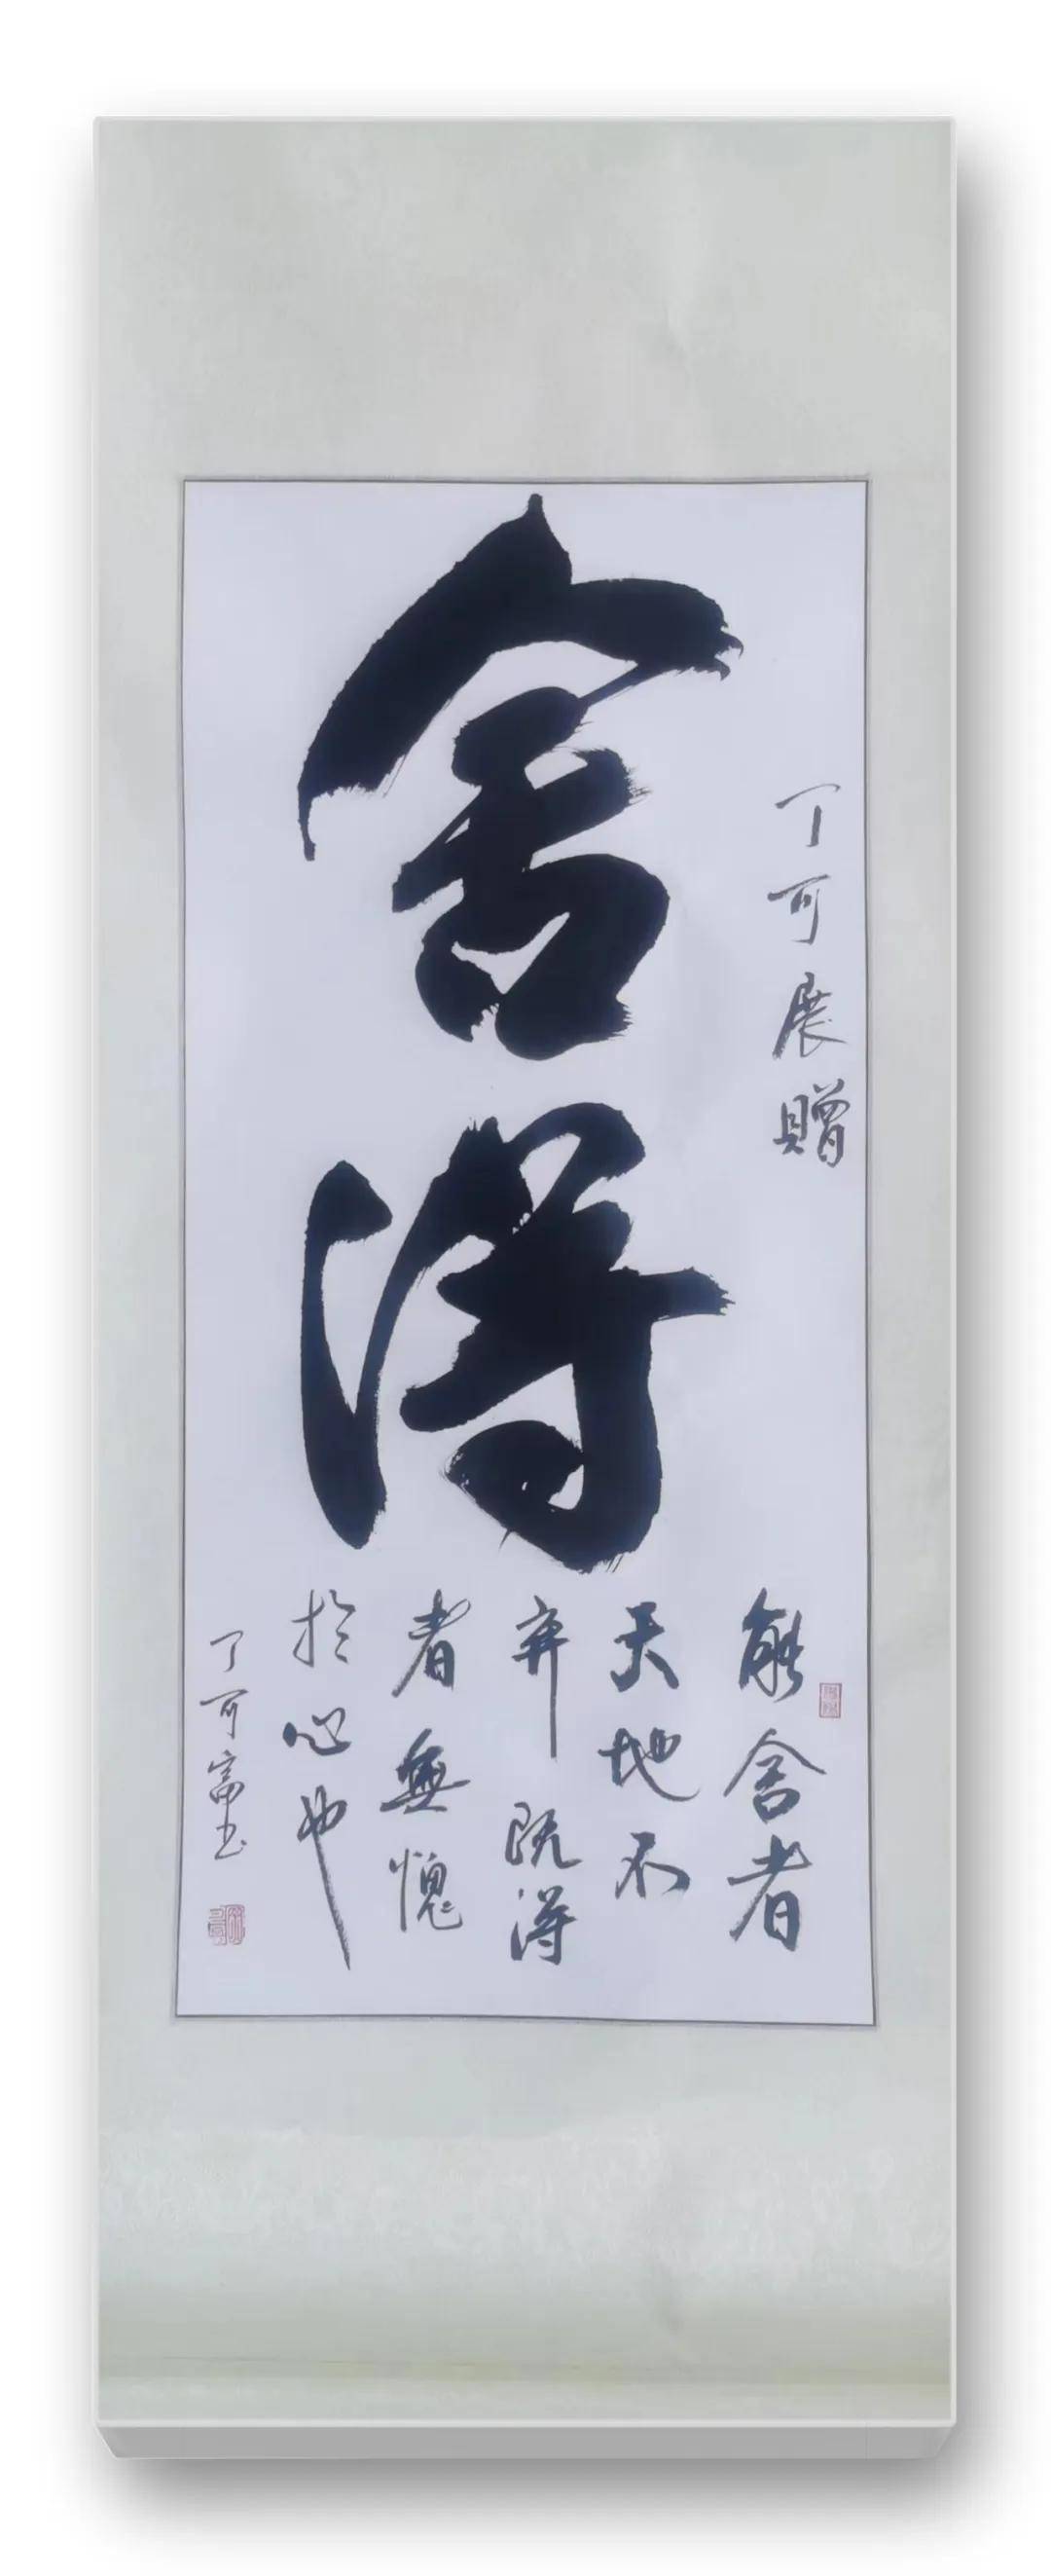 丁可展贈
舍得
能舍者
天地不
弃既得
者無愧
於心也
丁可富书